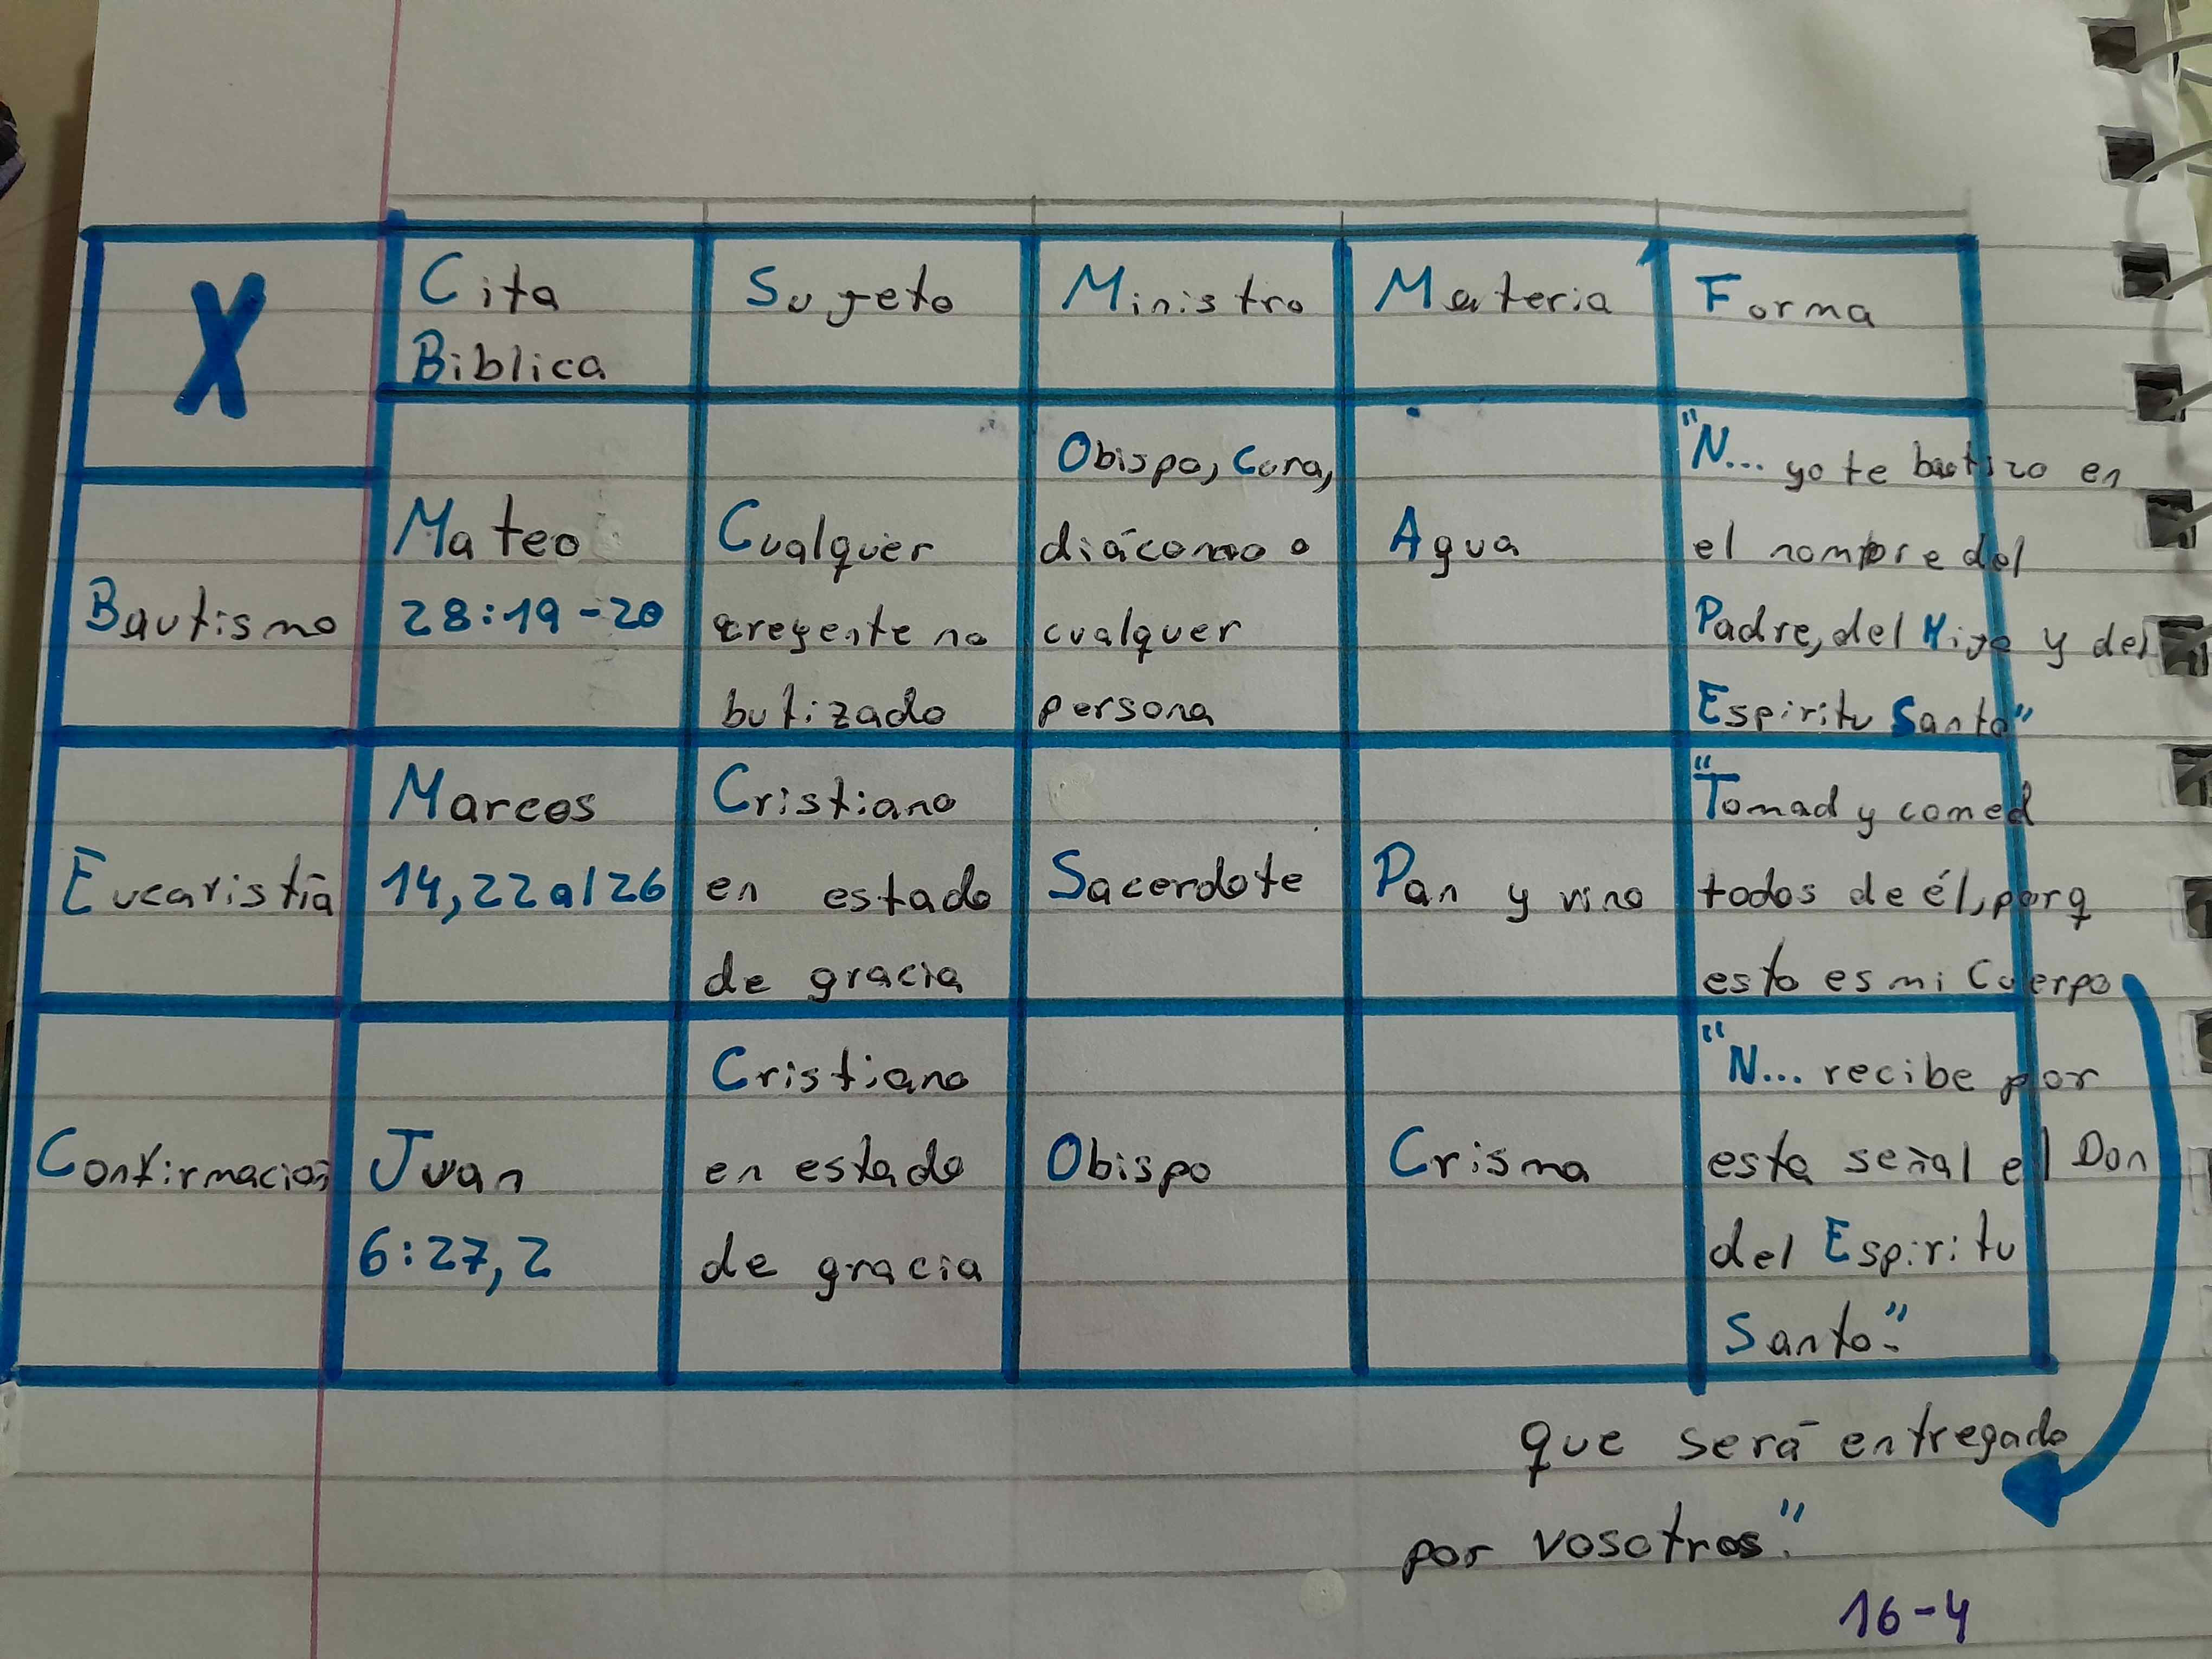 X
Cita
Biblica
Sugeto
Ministro
Materia
Forma
Bautismo
Mateo
28:19-20
Cualquer
creyente no
butizado
Obispo, Cura,
diácomo o
cualquer
persona
Agua
"N... yo te bautizo en
el nombre del
Padre, del Hijo y del
Espiritu Santo"
Eucaristía
Marcos
14,22 al 26
Cristiano
en estado
de gracia
Sacerdote
Pan y vino
"Tomad y comed
todos de él, porq
esto es mi Cuerpo
Confirmación
Juan
6:27,2
Cristiano
en estado
de gracia
Obispo
Crisma
"N... recibe por
esta señal el Don
del Espiritu
Santo."
que será entregado
por vosotros."
16-4